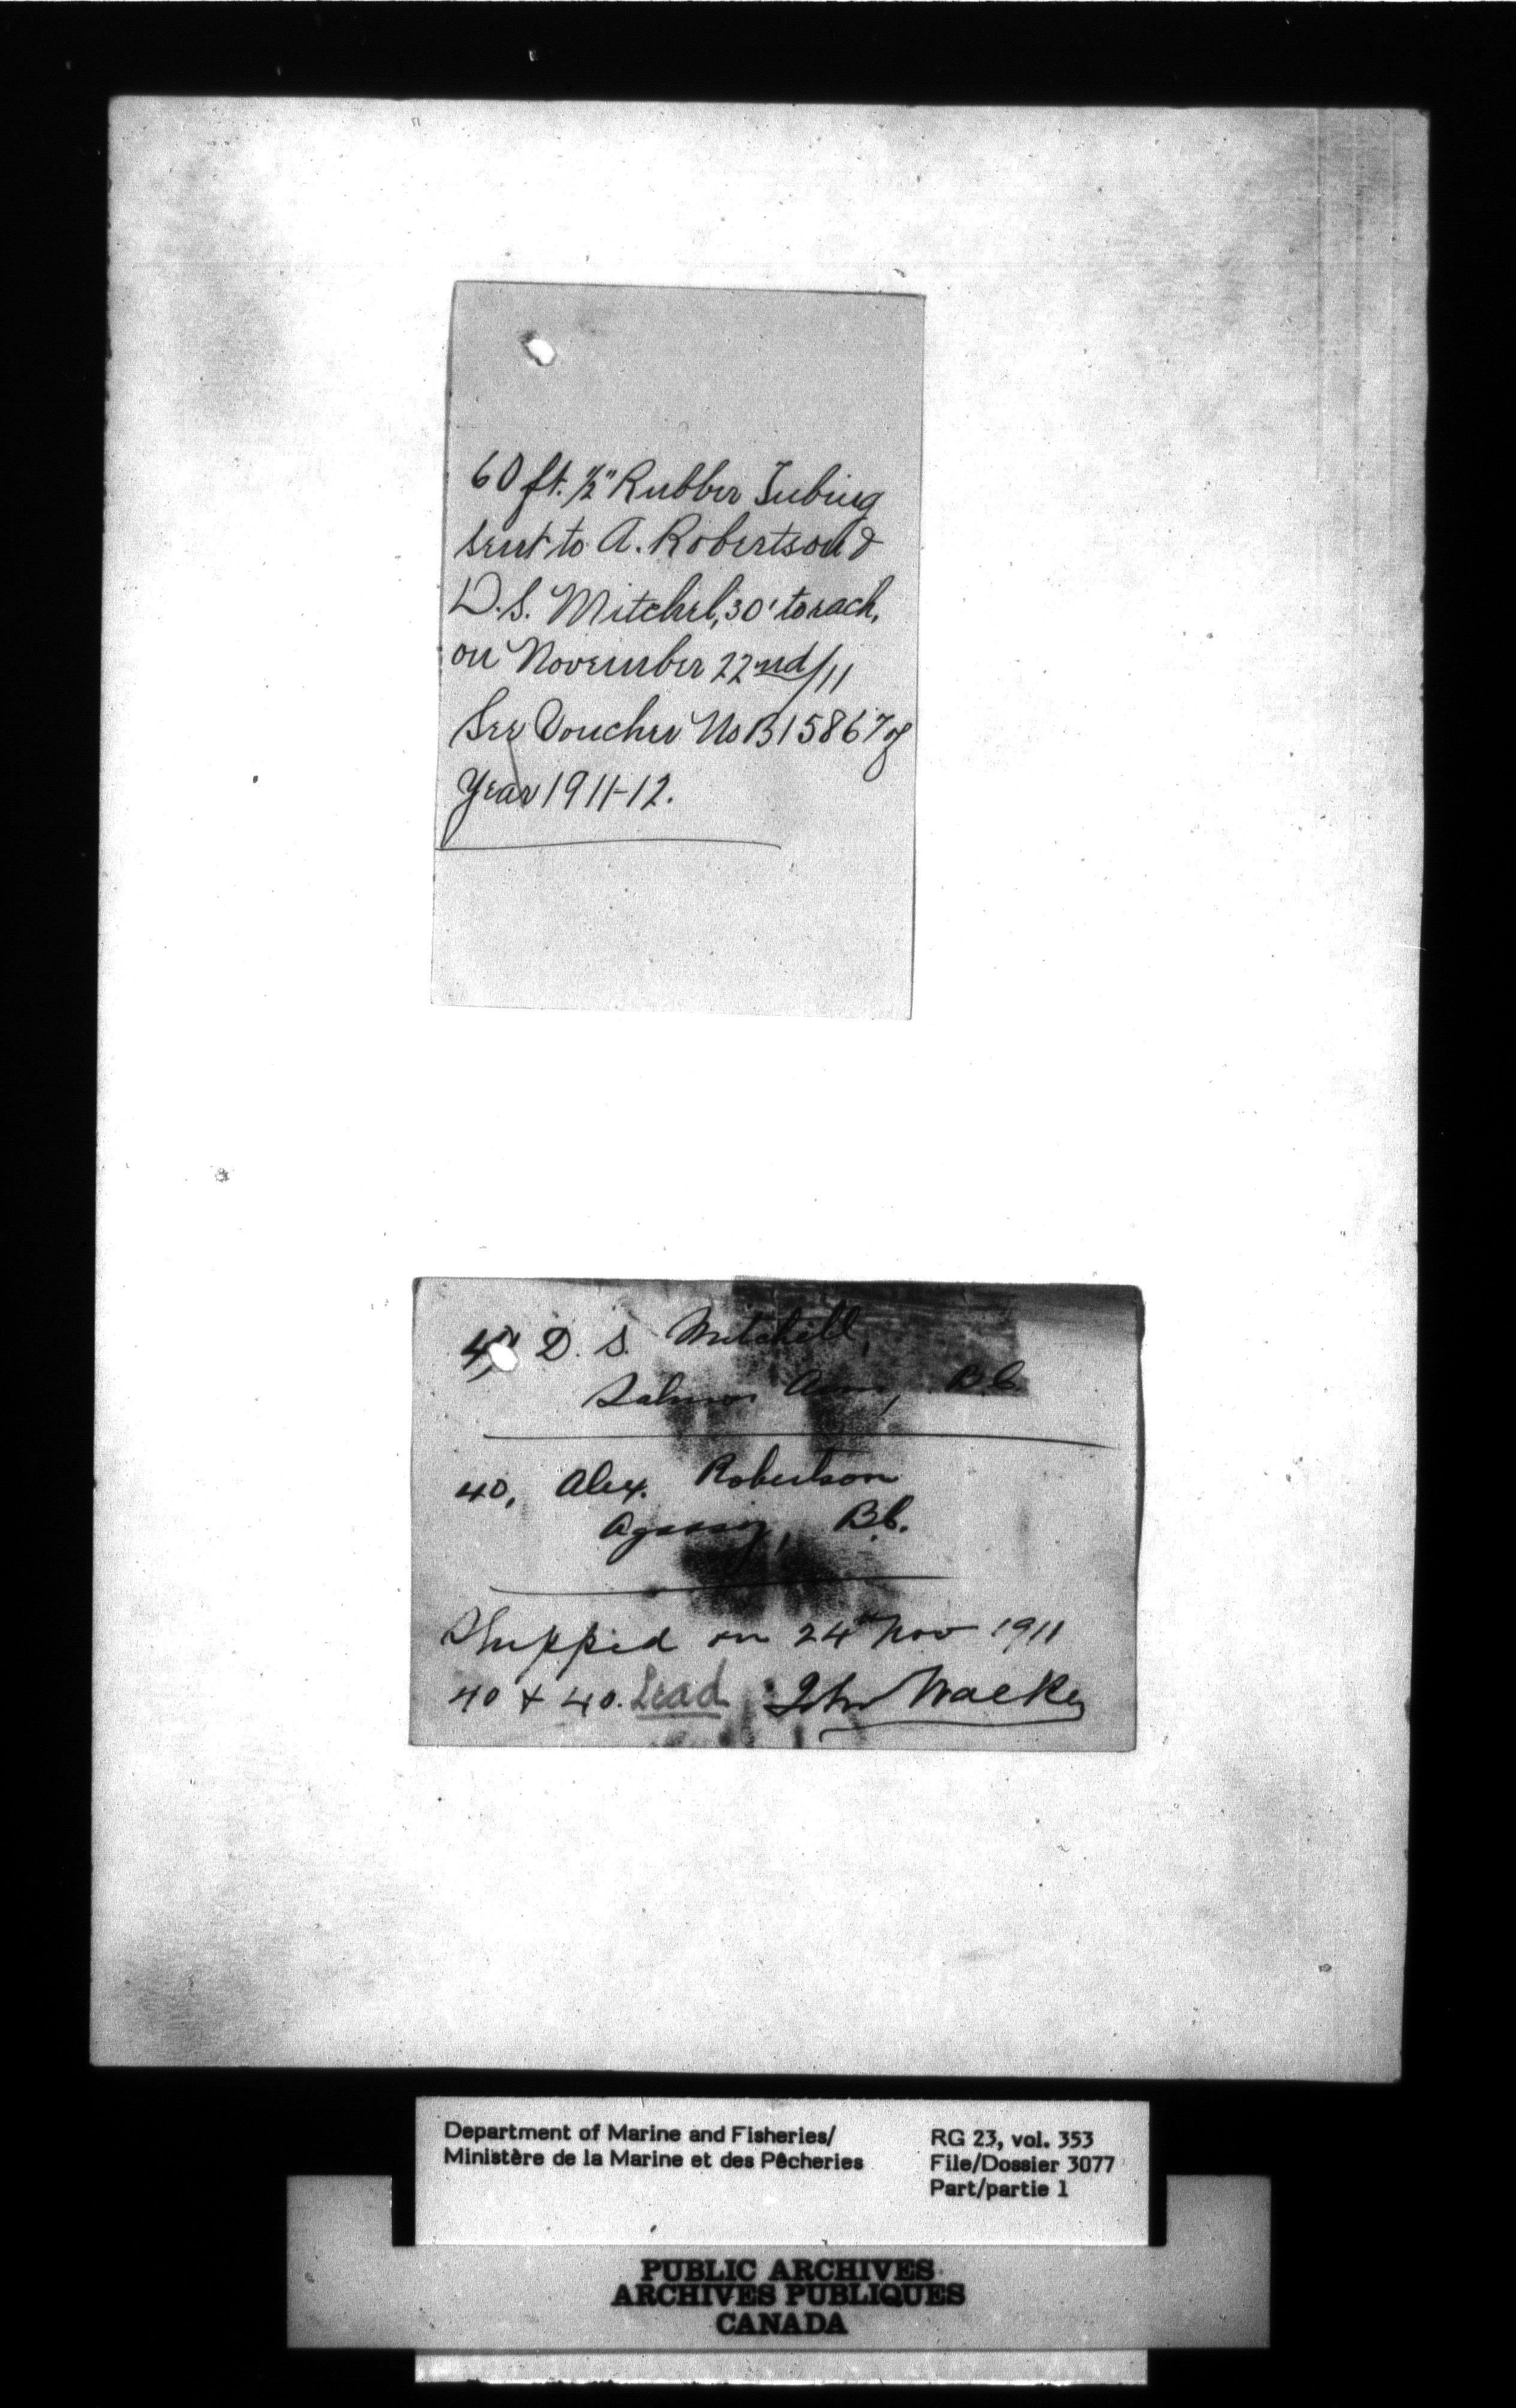 60 ft. 1/2" Rubber Tubing
sent to A. Robertson &
D.S. Mitchel, 30' to each,
on November 22nd/11
See Voucher No B15867 of
Year 1911-12.
D. S. Mitchell,
Salmon Arm, B.C.
40, Alex. Robertson
Agassiz, B.C.
Shipped on 24th Nov 1911
40 + 40. Lead John
Department of Marine and Fisheries/
Ministère de la Marine et des Pêcheries
RG 23, vol. 353
File/Dossier 3077
Part/partie 1
PUBLIC ARCHIVES
ARCHIVES PUBLIQUES
CANADA